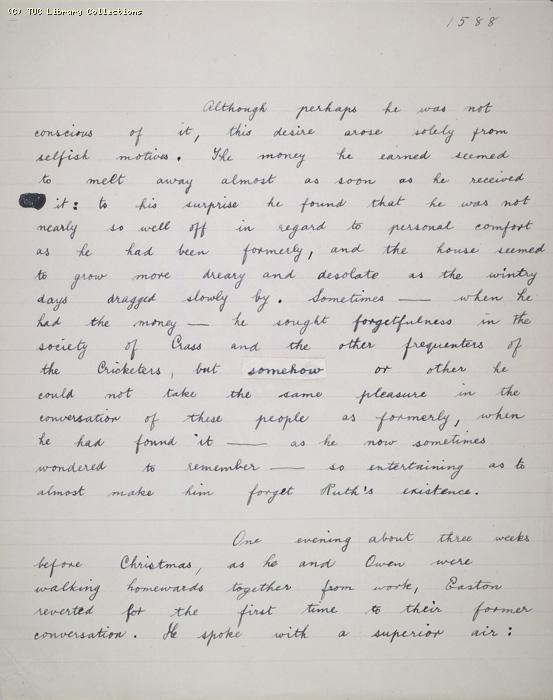 (C) TUC Library Collections
1588
Although perhaps he was not
conscious of it, this desire arose solely from
selfish motives. The money he earned seemed
to melt away almost as soon as he received
it: to his surprise he found that he was not
nearly so well off in regard to personal comfort
as he had been formerly, and the house seemed
to grow more dreary and desolate as the wintry
days dragged slowly by. Sometimes — when he
had the money — he sought forgetfulness in the
society of Crass and the other frequenters of
the Cricketers, but somehow or other he
could not take the same pleasure in the
conversation of these people as formerly, when
he had found it — as he now sometimes
wondered to remember — so entertaining as to
almost make him forget Ruth's existence.
One evening about three weeks
before Christmas, as he and Owen were
walking homewards together from work, Easton
reverted for the first time to their former
conversation. He spoke with a superior air: